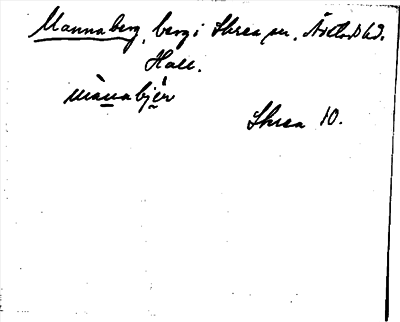 Mannaberg, berg i Skrea sn. Årstads hd.
Hall.
mànabjér
Skrea 10.